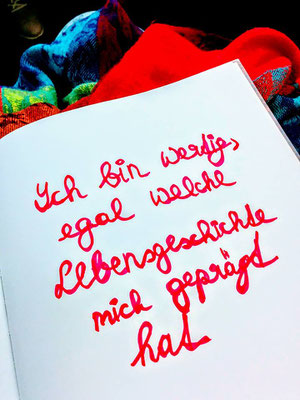 Ich bin wertig,
egal welche
Lebensgeschichte
mich geprägt
hat